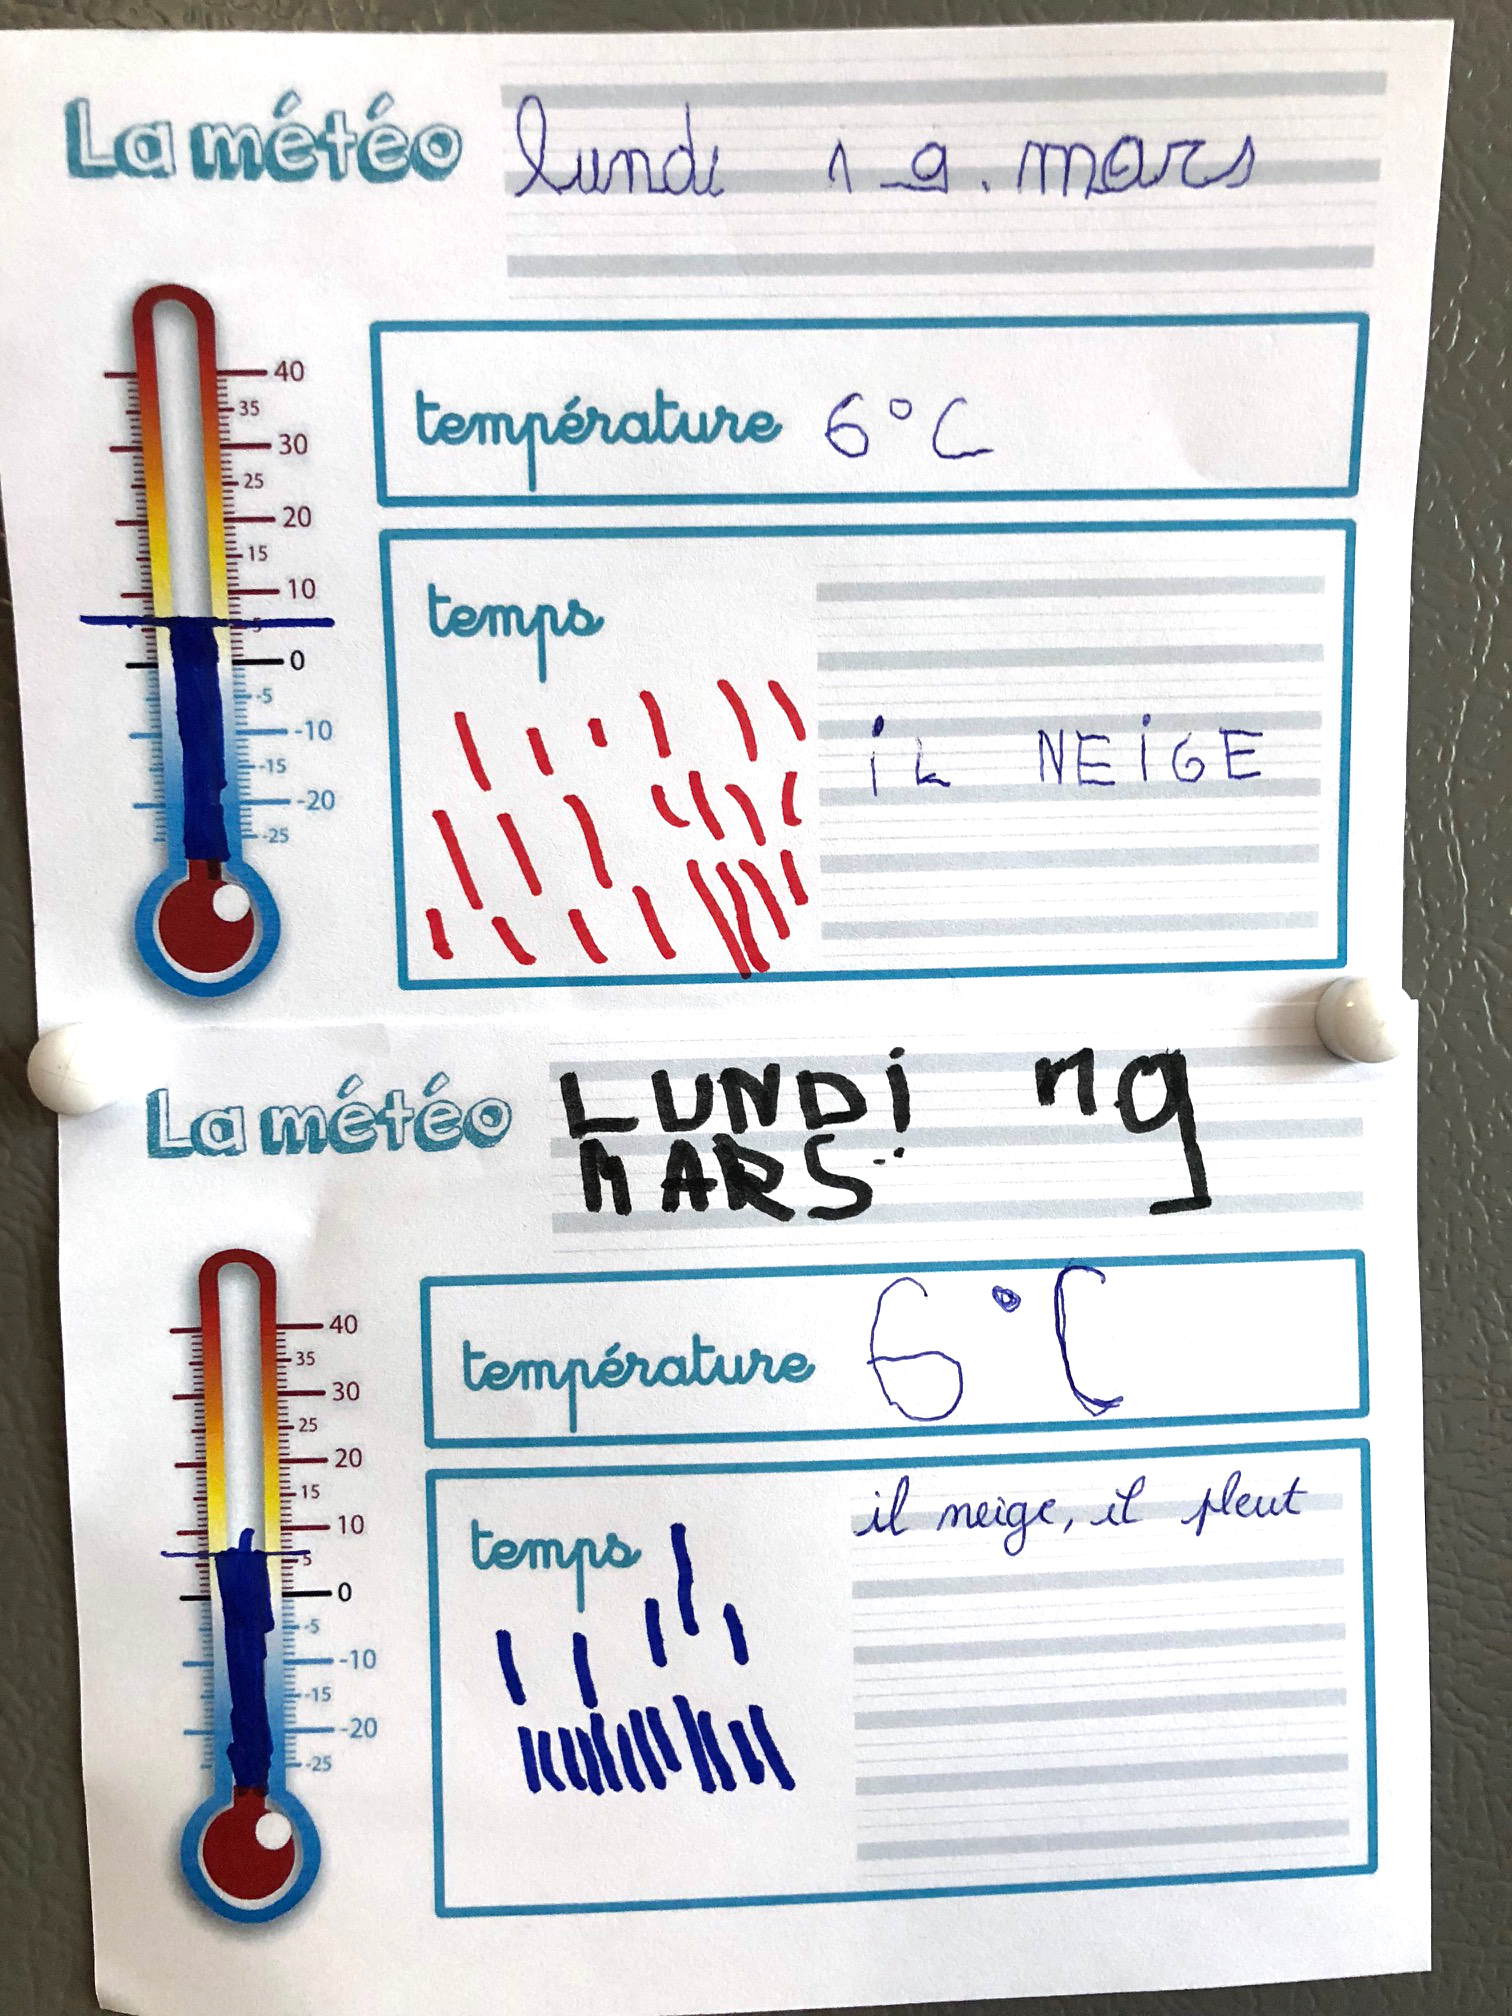 La météo lundi 19. mars
40
35
30
25
20
15
10
5
0
-5
-10
-15
-20
-25
température 6°C
temps
iL NEiGE
La météo LUNDi 19
MARS
40
35
30
25
20
15
10
5
0
-5
-10
-15
-20
-25
température 6°C
temps
il neige, il pleut